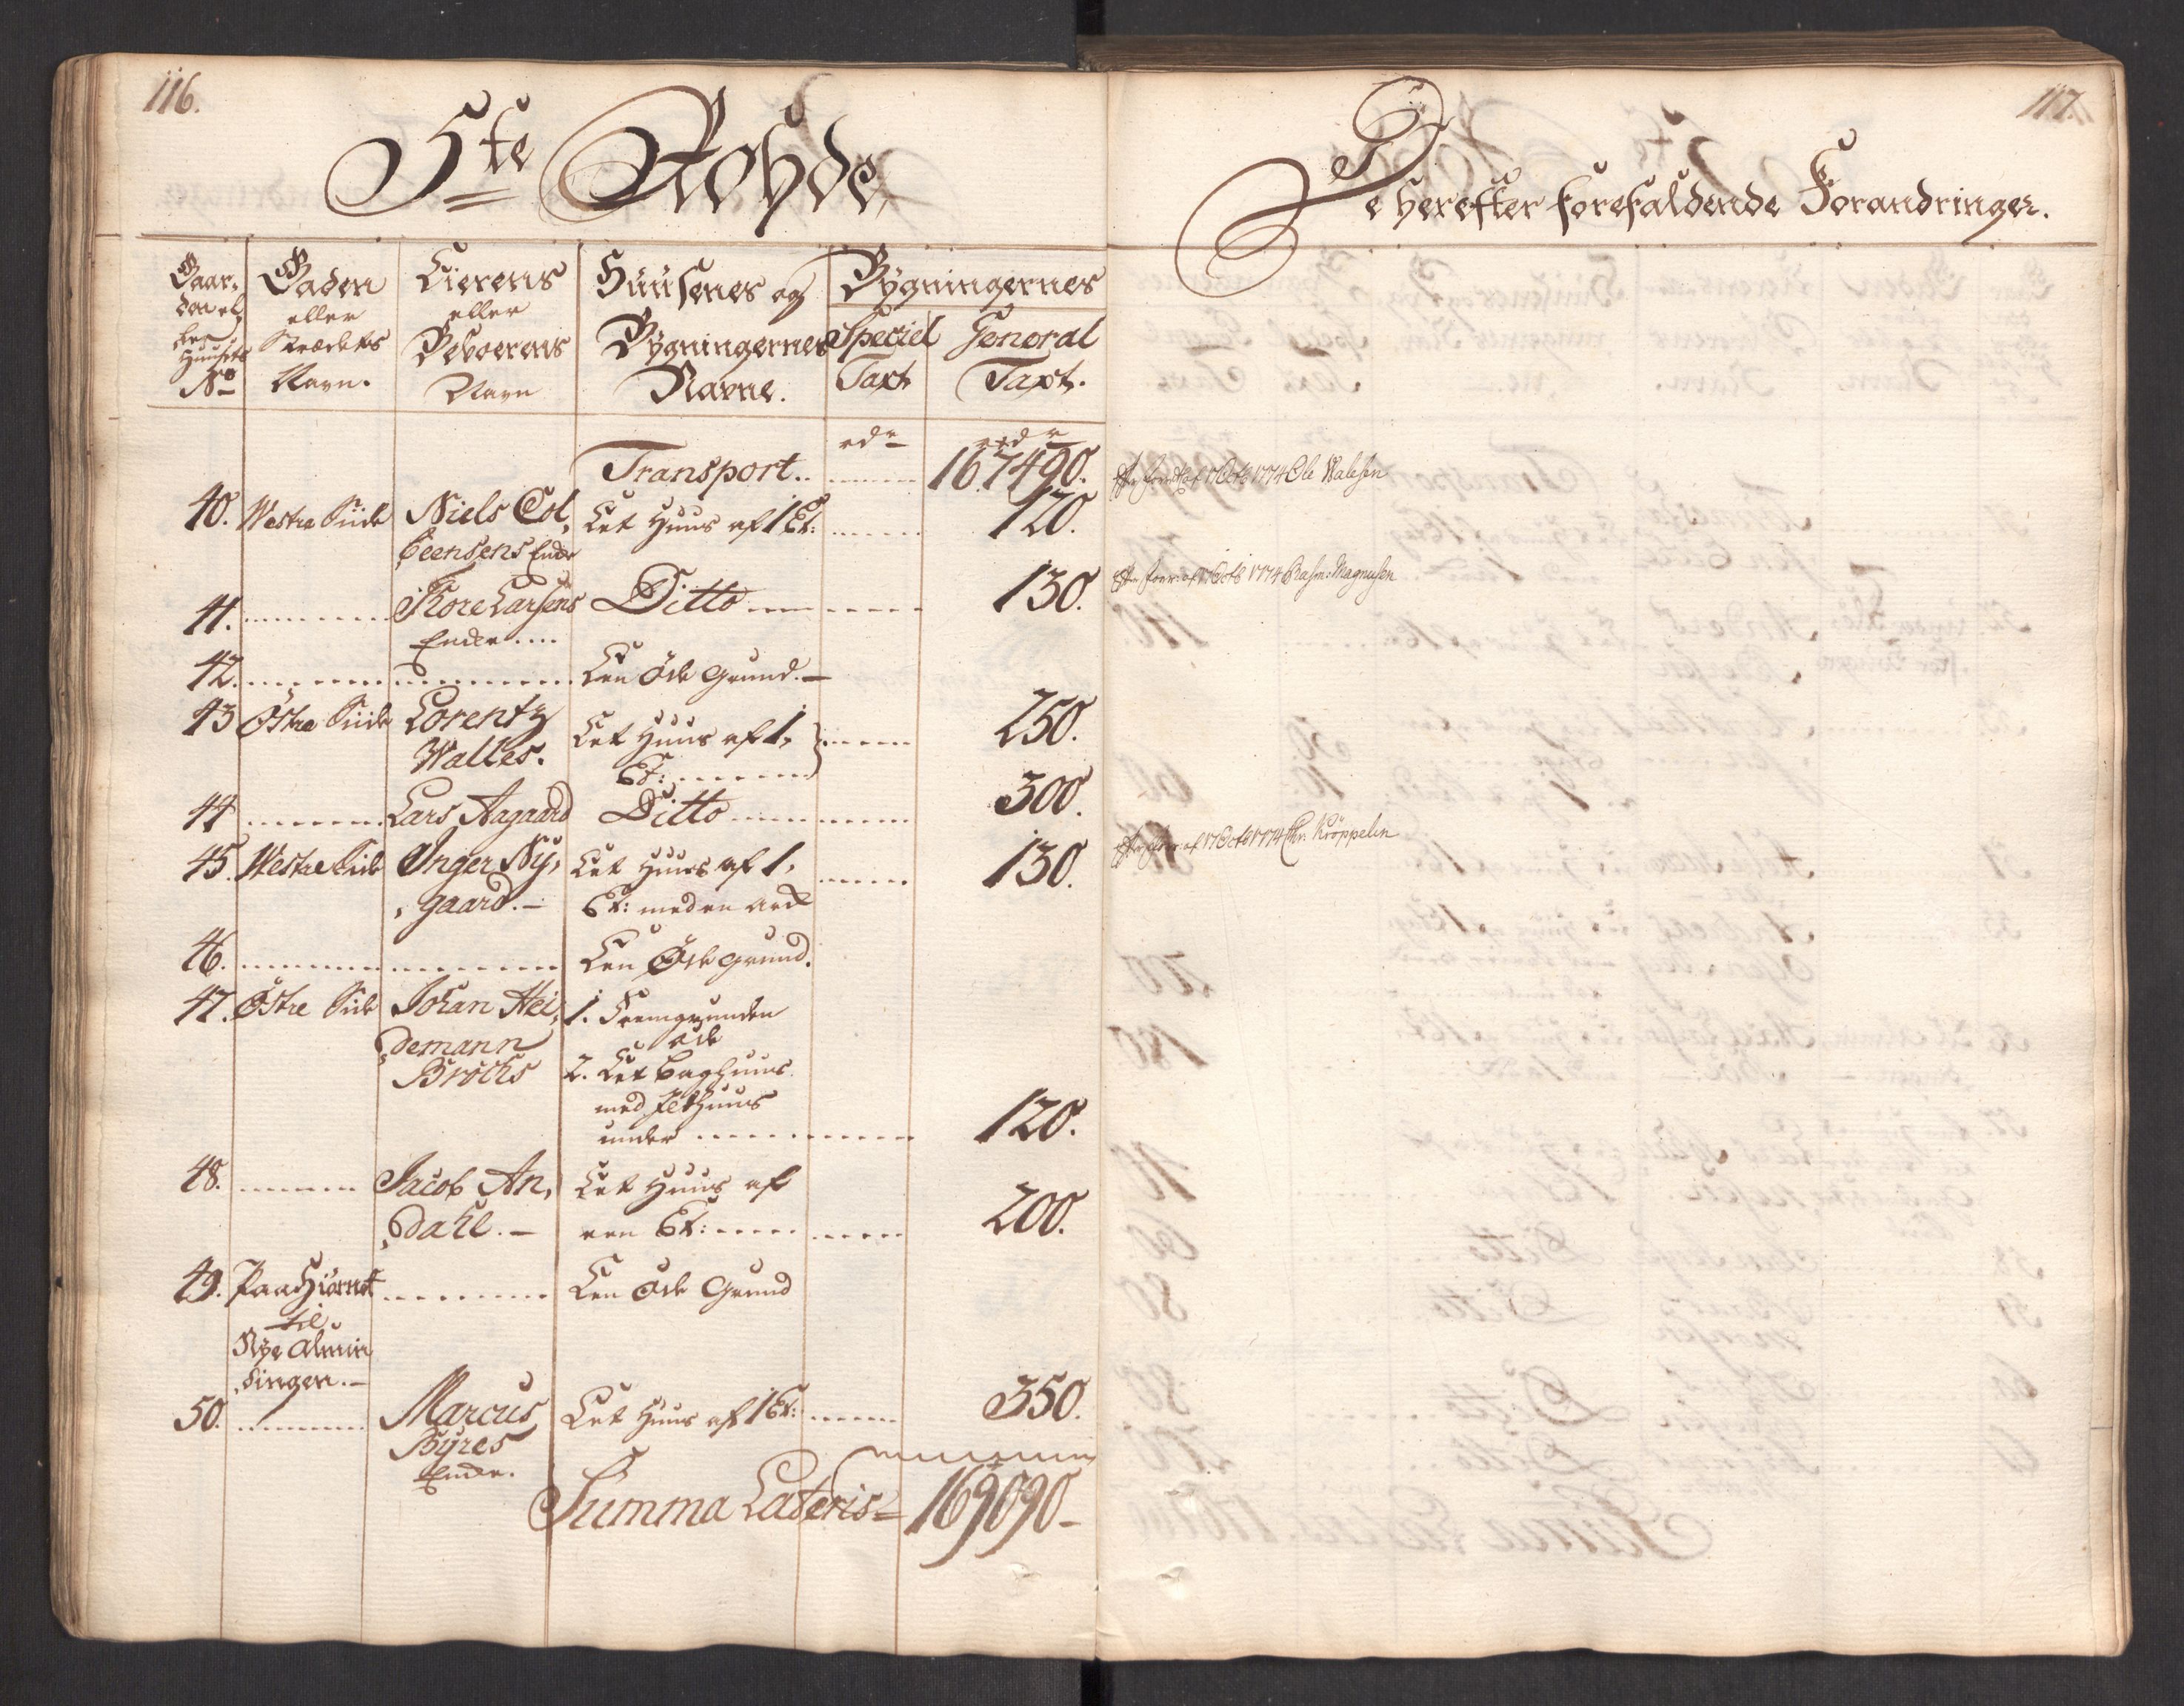 116.
5te Rohde
Gaar,
den el,
ler
Huusets
No
Gaden
eller
Strædets
Navn.
Eierens
eller
Beboerens
Navn
Huusenes og
Bygningernes
Navne.
Bygningernes
Speciel
Taxt
General
Taxt.
rdr
rdr
Transport.. 167490.
40. Westre Siide Niels Col,
beensens Enke
Eet Huus af 1 Et: 120.
41. Thore Larsens
Enke....
Ditto 130.
42. Een Öde Grund.-
43 Östre Siide Lorentz
Walles.
Eet Huus af 1,
Et: 250.
44 Lars Aagaard Ditto 300.
45. Westre Side Inger Ny,
gaard.-
Eet Huus af 1,
Et: med en Ark 130.
46. Een Öde Grund.
47. Östre Side Johan Hei,
demann
Brochs
1. Fremgrunden
öde
2. Eet Baghuus
med Ildhuus
under 120.
48. Jacob An,
dahl.-
Eet Huus af
een Et: 200.
49. Paa Hiörnet
til
Nye Almin
dingen.-
Een Öde Grund
50. Marcus
Byres
Enke.
Eet Huus af 1 Et: 350.
Summa Lateris 169090-
117.
De herefter forefaldende Forandringer.
17 Octb 1774 Ole Walesen
1774 Rasm: Magnusen
af 17 Octb 1774 Chr: Kröppelin